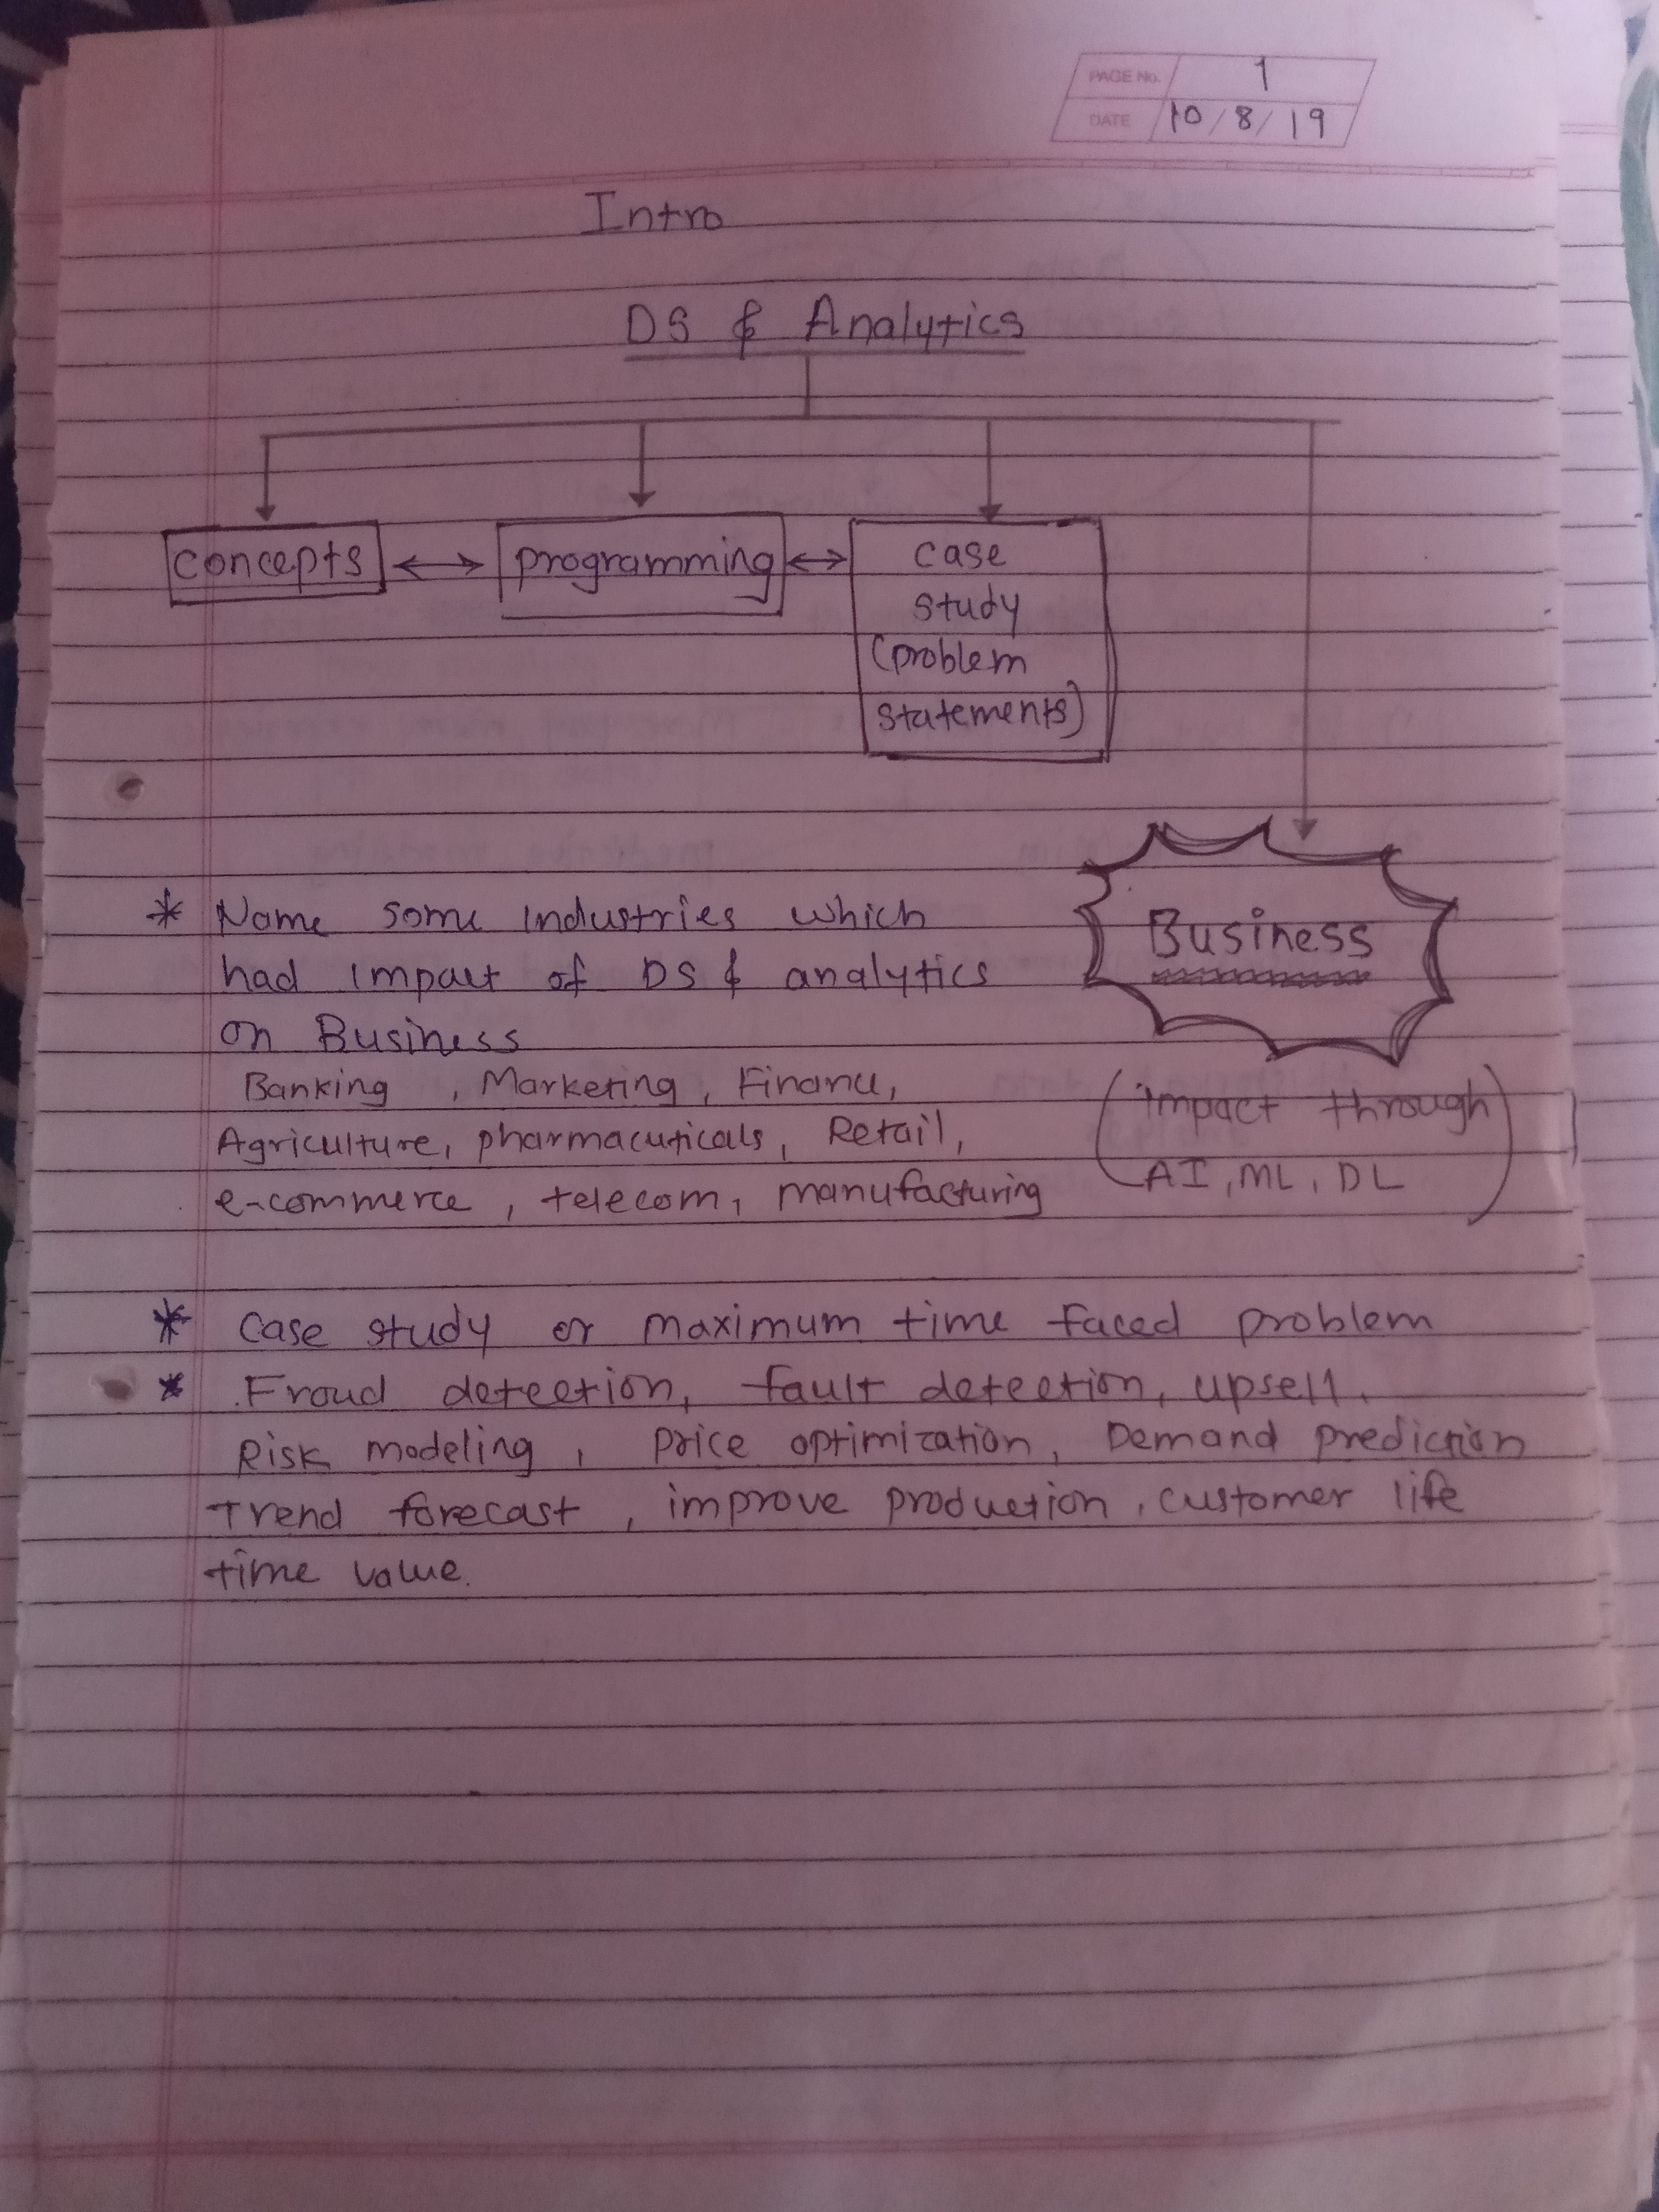 PAGE No. 1
DATE 10/8/19
Intro
DS & Analytics
concepts programming case
study
(problem
statements)
* Name some industries which
had impact of DS & analytics
on Business
Business
Banking, Marketing, Finance,
Agriculture, pharmacuticals, Retail,
e-commerce, telecom, manufacturing
(impact through
AI, ML, DL)
* Case study or maximum time faced problem
* Fraud detection, fault detection, upsell,
Risk modeling, Price optimization, Demand prediction
Trend forecast, improve production, customer life
time value.